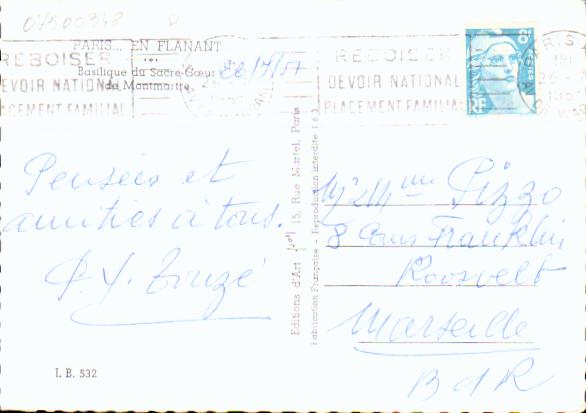 07500348
PARIS... EN FLANANT
Basilique du Sacré-Cœur
de Montmartre
REBOISER
DEVOIR NATIONAL
PLACEMENT FAMILIAL
REBOISER
DEVOIR NATIONAL
PLACEMENT FAMILIAL
PARIS
8F
RF
Pensées et
amitiés à tous.
Editions d'Art 15, Rue Martel, Paris
Fabrication Française - Reproduction interdite 163
Mr Mme Pizzo
8 Cours Franklin
Roosvelt
Marseille
B d R
I. B. 532